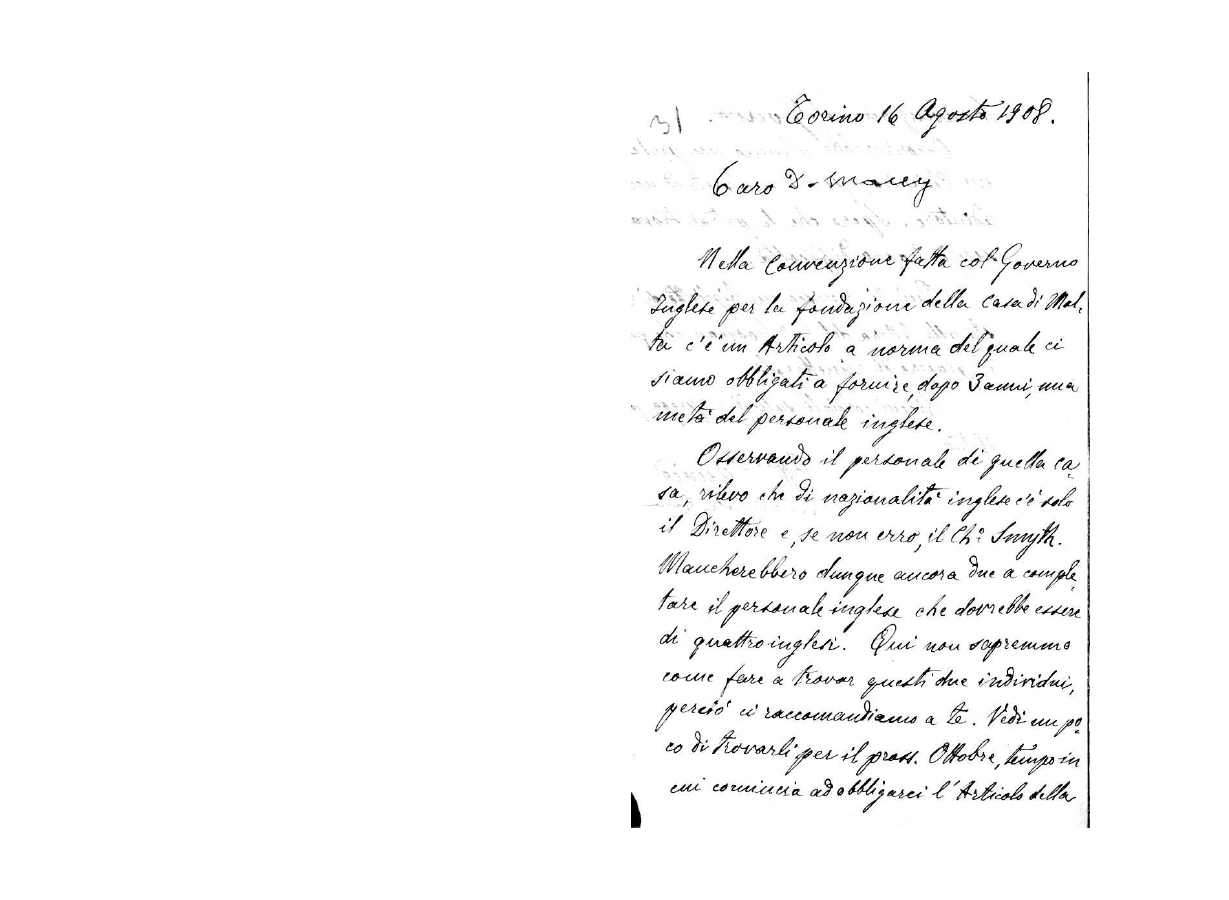 31
Torino 16 Agosto 1908.
Caro D. Macey
Nella Convenzione fatta col Governo
Inglese per la fondazione della Casa di Mal-
ta c'é un Articolo a norma del quale ci
siamo obbligati a fornire, dopo 3 anni, una
metà del personale inglese.
Osservando il personale di quella ca-
sa, rilevo che di nazionalità inglese c'é solo
il Direttore e, se non erro, il Chº Smyth.
Mancherebbero dunque ancora due a comple-
tare il personale inglese che dovrebbe essere
di quattro inglesi. Qui non sapremmo
come fare a trovar questi due individui,
perciò ci raccomandiamo a te. Vedi un po-
co di trovarli per il pross. Ottobre, tempo in
cui comincia ad obbligarci l'Articolo della